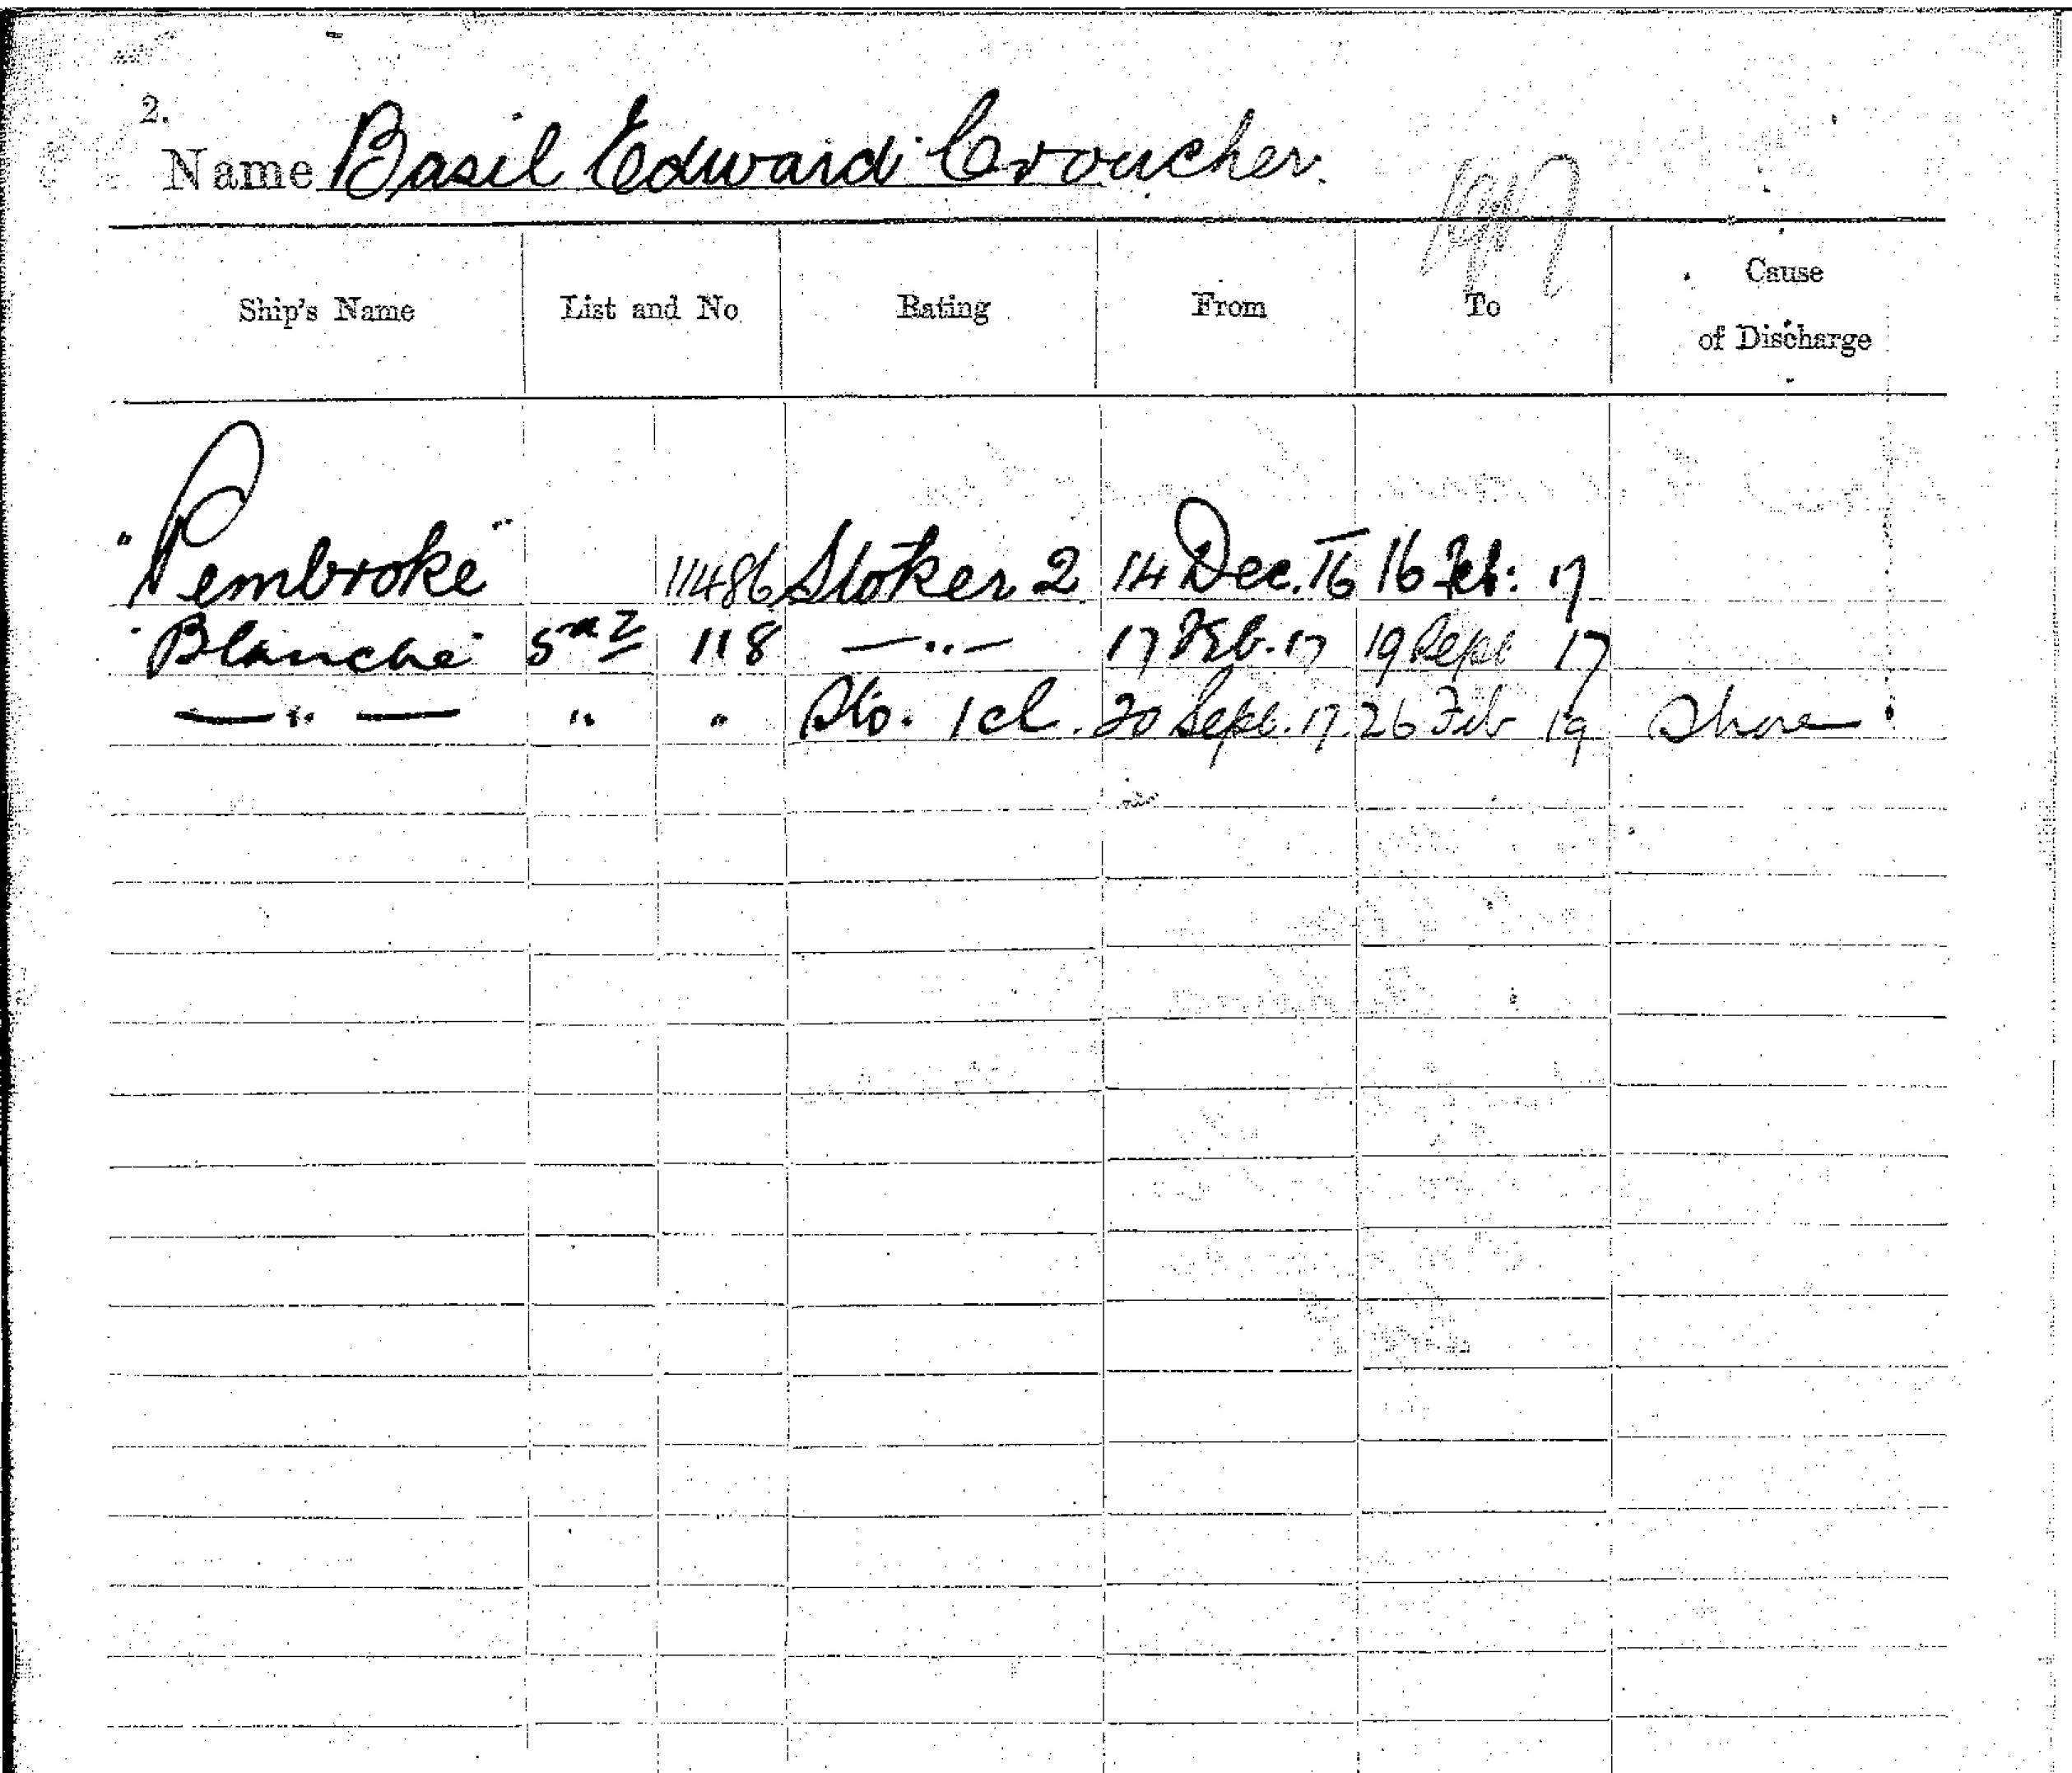 2.
Name Basil Edward Croucher.
Ship's Name List and No Rating From To Cause of Discharge
"Pembroke" 11486 Stoker 2 14 Dec. 16 16 Feb: 17
"Blanche" 118 —"— 17 Feb. 17 19 Sept 17
—"— " " Sto. 1 cl. 20 Sept. 17. 26 Feb 19 Shore